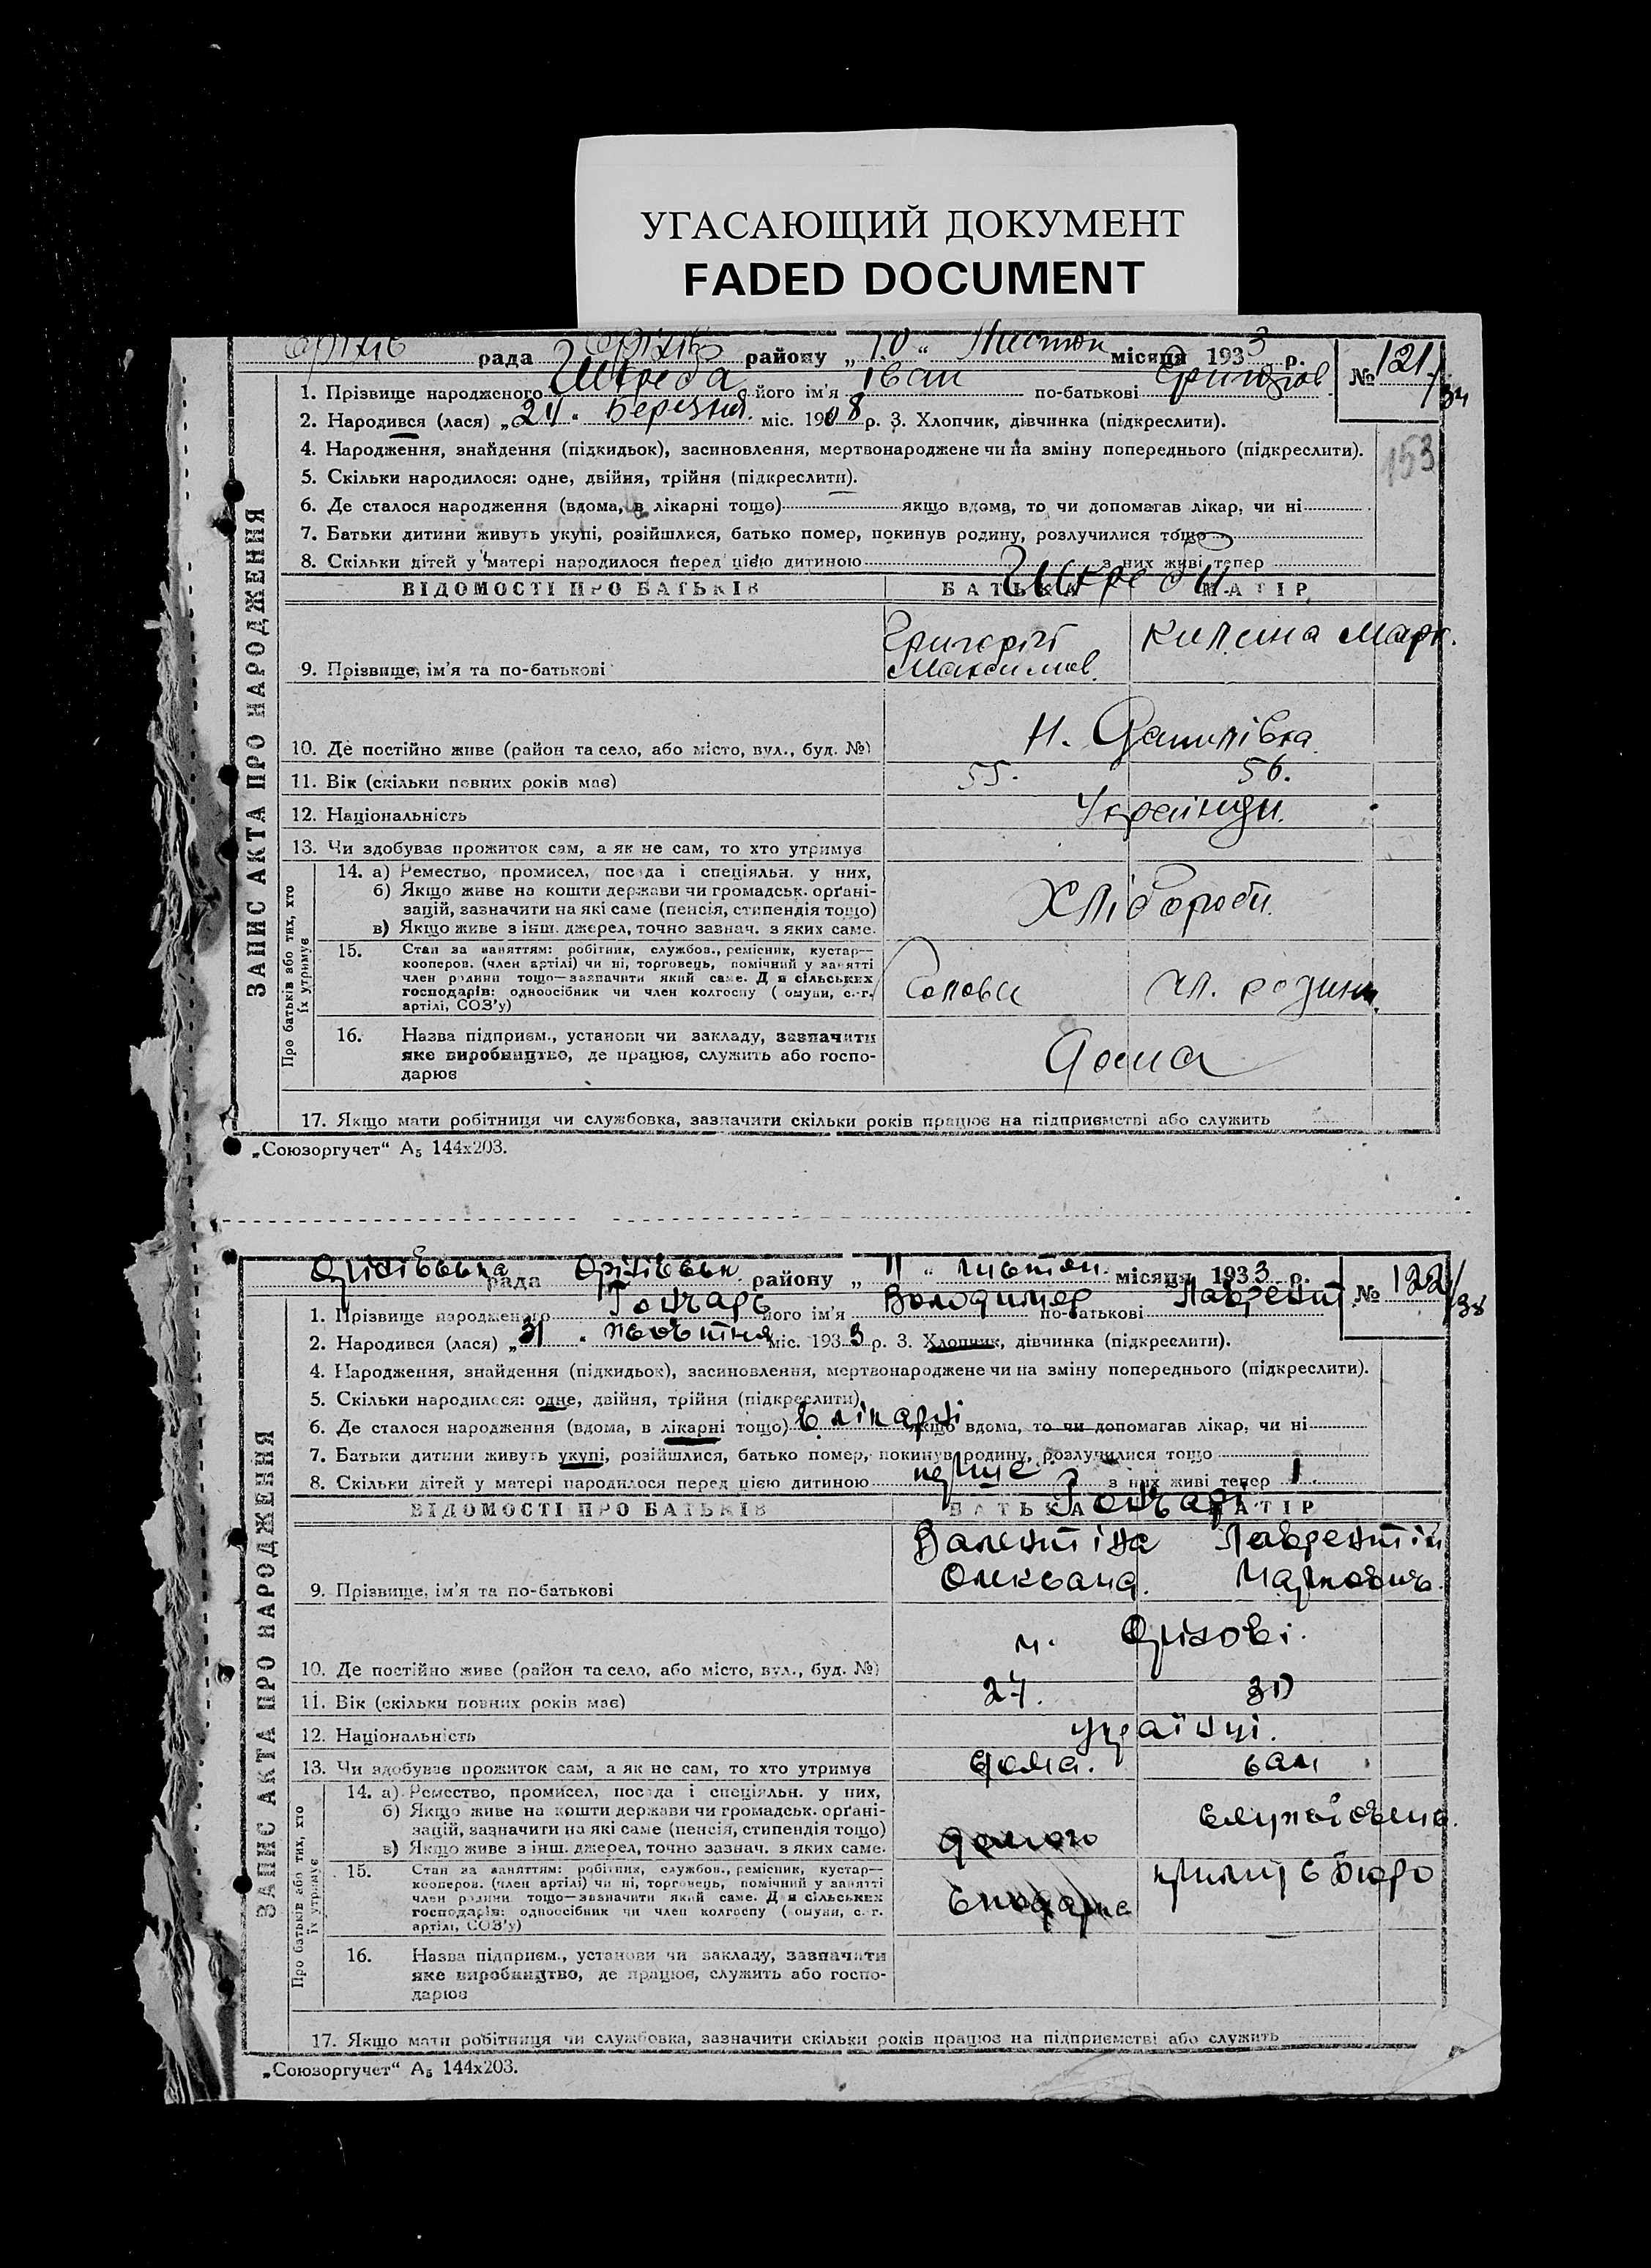 УГАСАЮЩИЙ ДОКУМЕНТ
FADED DOCUMENT
рада району „10“ місяця 1933 р. № 121/34
1. Прізвище народженого його ім'я Іван по-батькові
2. Народився (лася) „24“ Березня міс. 1908 р. 3. Хлопчик, дівчинка (підкреслити).
153
4. Народження, знайдення (підкидьок), засиновлення, мертвонароджене чи на зміну попереднього (підкреслити).
5. Скільки народилося: одне, двійня, трійня (підкреслити).
6. Де сталося народження (вдома, в лікарні тощо) якщо вдома, то чи допомагав лікар, чи ні
7. Батьки дитини живуть укупі, розійшлися, батько помер, покинув родину, розлучилися тощо
8. Скільки дітей у матері народилося перед цією дитиною з них живі тепер
ВІДОМОСТІ ПРО БАТЬКІВ БАТЬКА МАТІР
9. Прізвище, ім'я та по-батькові Григорій Максимов. Килина Марк.
10. Де постійно живе (район та село, або місто, вул., буд. №) Н. Данилівка
11. Вік (скільки повних років має) 55. 56.
12. Національність Українци.
13. Чи здобуває прожиток сам, а як не сам, то хто утримує
14. а) Ремество, промисел, посада і спеціяльн. у них,
б) Якщо живе на кошти держави чи громадськ. орґані-
зацій, зазначити на які саме (пенсія, стипендія тощо)
в) Якщо живе з інш. джерел, точно зазнач. з яких саме.
Хлібороби.
15. Стан за заняттям: робітник, службов., ремісник, кустар—
кооперов. (член артілі) чи ні, торговець, помічний у занятті
член родини тощо—зазначити який саме. Для сільських
господарів: одноосібник чи член колгоспу (комуни, с.-г.
артілі, СОЗ'у)
Голова чл. родини.
16. Назва підприєм., установи чи закладу, зазначити
яке виробництво, де працює, служить або госпо-
дарює
Дома
17. Якщо мати робітниця чи службовка, зазначити скільки років працює на підприємстві або служить
ЗАПИС АКТА ПРО НАРОДЖЕННЯ
Про батьків або тих, хто
їх утримує
„Союзоргучет“ А₅ 144х203.
Оріхівська рада Оріхівськ. району „11“ місяця 1933 р. № 122/38
1. Прізвище народженого Гончарь його ім'я Володимер по-батькові Лаврент
2. Народився (лася) „31“ жовтня міс. 1933 р. 3. Хлопчик, дівчинка (підкреслити).
4. Народження, знайдення (підкидьок), засиновлення, мертвонароджене чи на зміну попереднього (підкреслити).
5. Скільки народилося: одне, двійня, трійня (підкреслити)
6. Де сталося народження (вдома, в лікарні тощо) В лікарні якщо вдома, то чи допомагав лікар, чи ні
7. Батьки дитини живуть укупі, розійшлися, батько помер, покинув родину, розлучилися тощо
8. Скільки дітей у матері народилося перед цією дитиною перше з них живі тепер 1.
Гончарі.
ВІДОМОСТІ ПРО БАТЬКІВ БАТЬКА МАТІР
9. Прізвище, ім'я та по-батькові Валентіна Олексана. Лаврентій Маркович.
10. Де постійно живе (район та село, або місто, вул., буд. №) м. Оріхові.
11. Вік (скільки повних років має) 27. 30
12. Національність українці.
13. Чи здобуває прожиток сам, а як не сам, то хто утримує дома. сам
14. а) Ремество, промисел, посада і спеціяльн. у них,
б) Якщо живе на кошти держави чи громадськ. орґані-
зацій, зазначити на які саме (пенсія, стипендія тощо)
в) Якщо живе з інш. джерел, точно зазнач. з яких саме.
15. Стан за заняттям: робітник, службов., ремісник, кустар—
кооперов. (член артілі) чи ні, торговець, помічний у занятті
член родини тощо—зазначити який саме. Для сільських
господарів: одноосібник чи член колгоспу (комуни, с.-г.
артілі, СОЗ'у)
бюро
16. Назва підприєм., установи чи закладу, зазначити
яке виробництво, де працює, служить або госпо-
дарює
17. Якщо мати робітниця чи службовка, зазначити скільки років працює на підприємстві або служить
ЗАПИС АКТА ПРО НАРОДЖЕННЯ
Про батьків або тих, хто
їх утримує
„Союзоргучет“ А₅ 144х203.